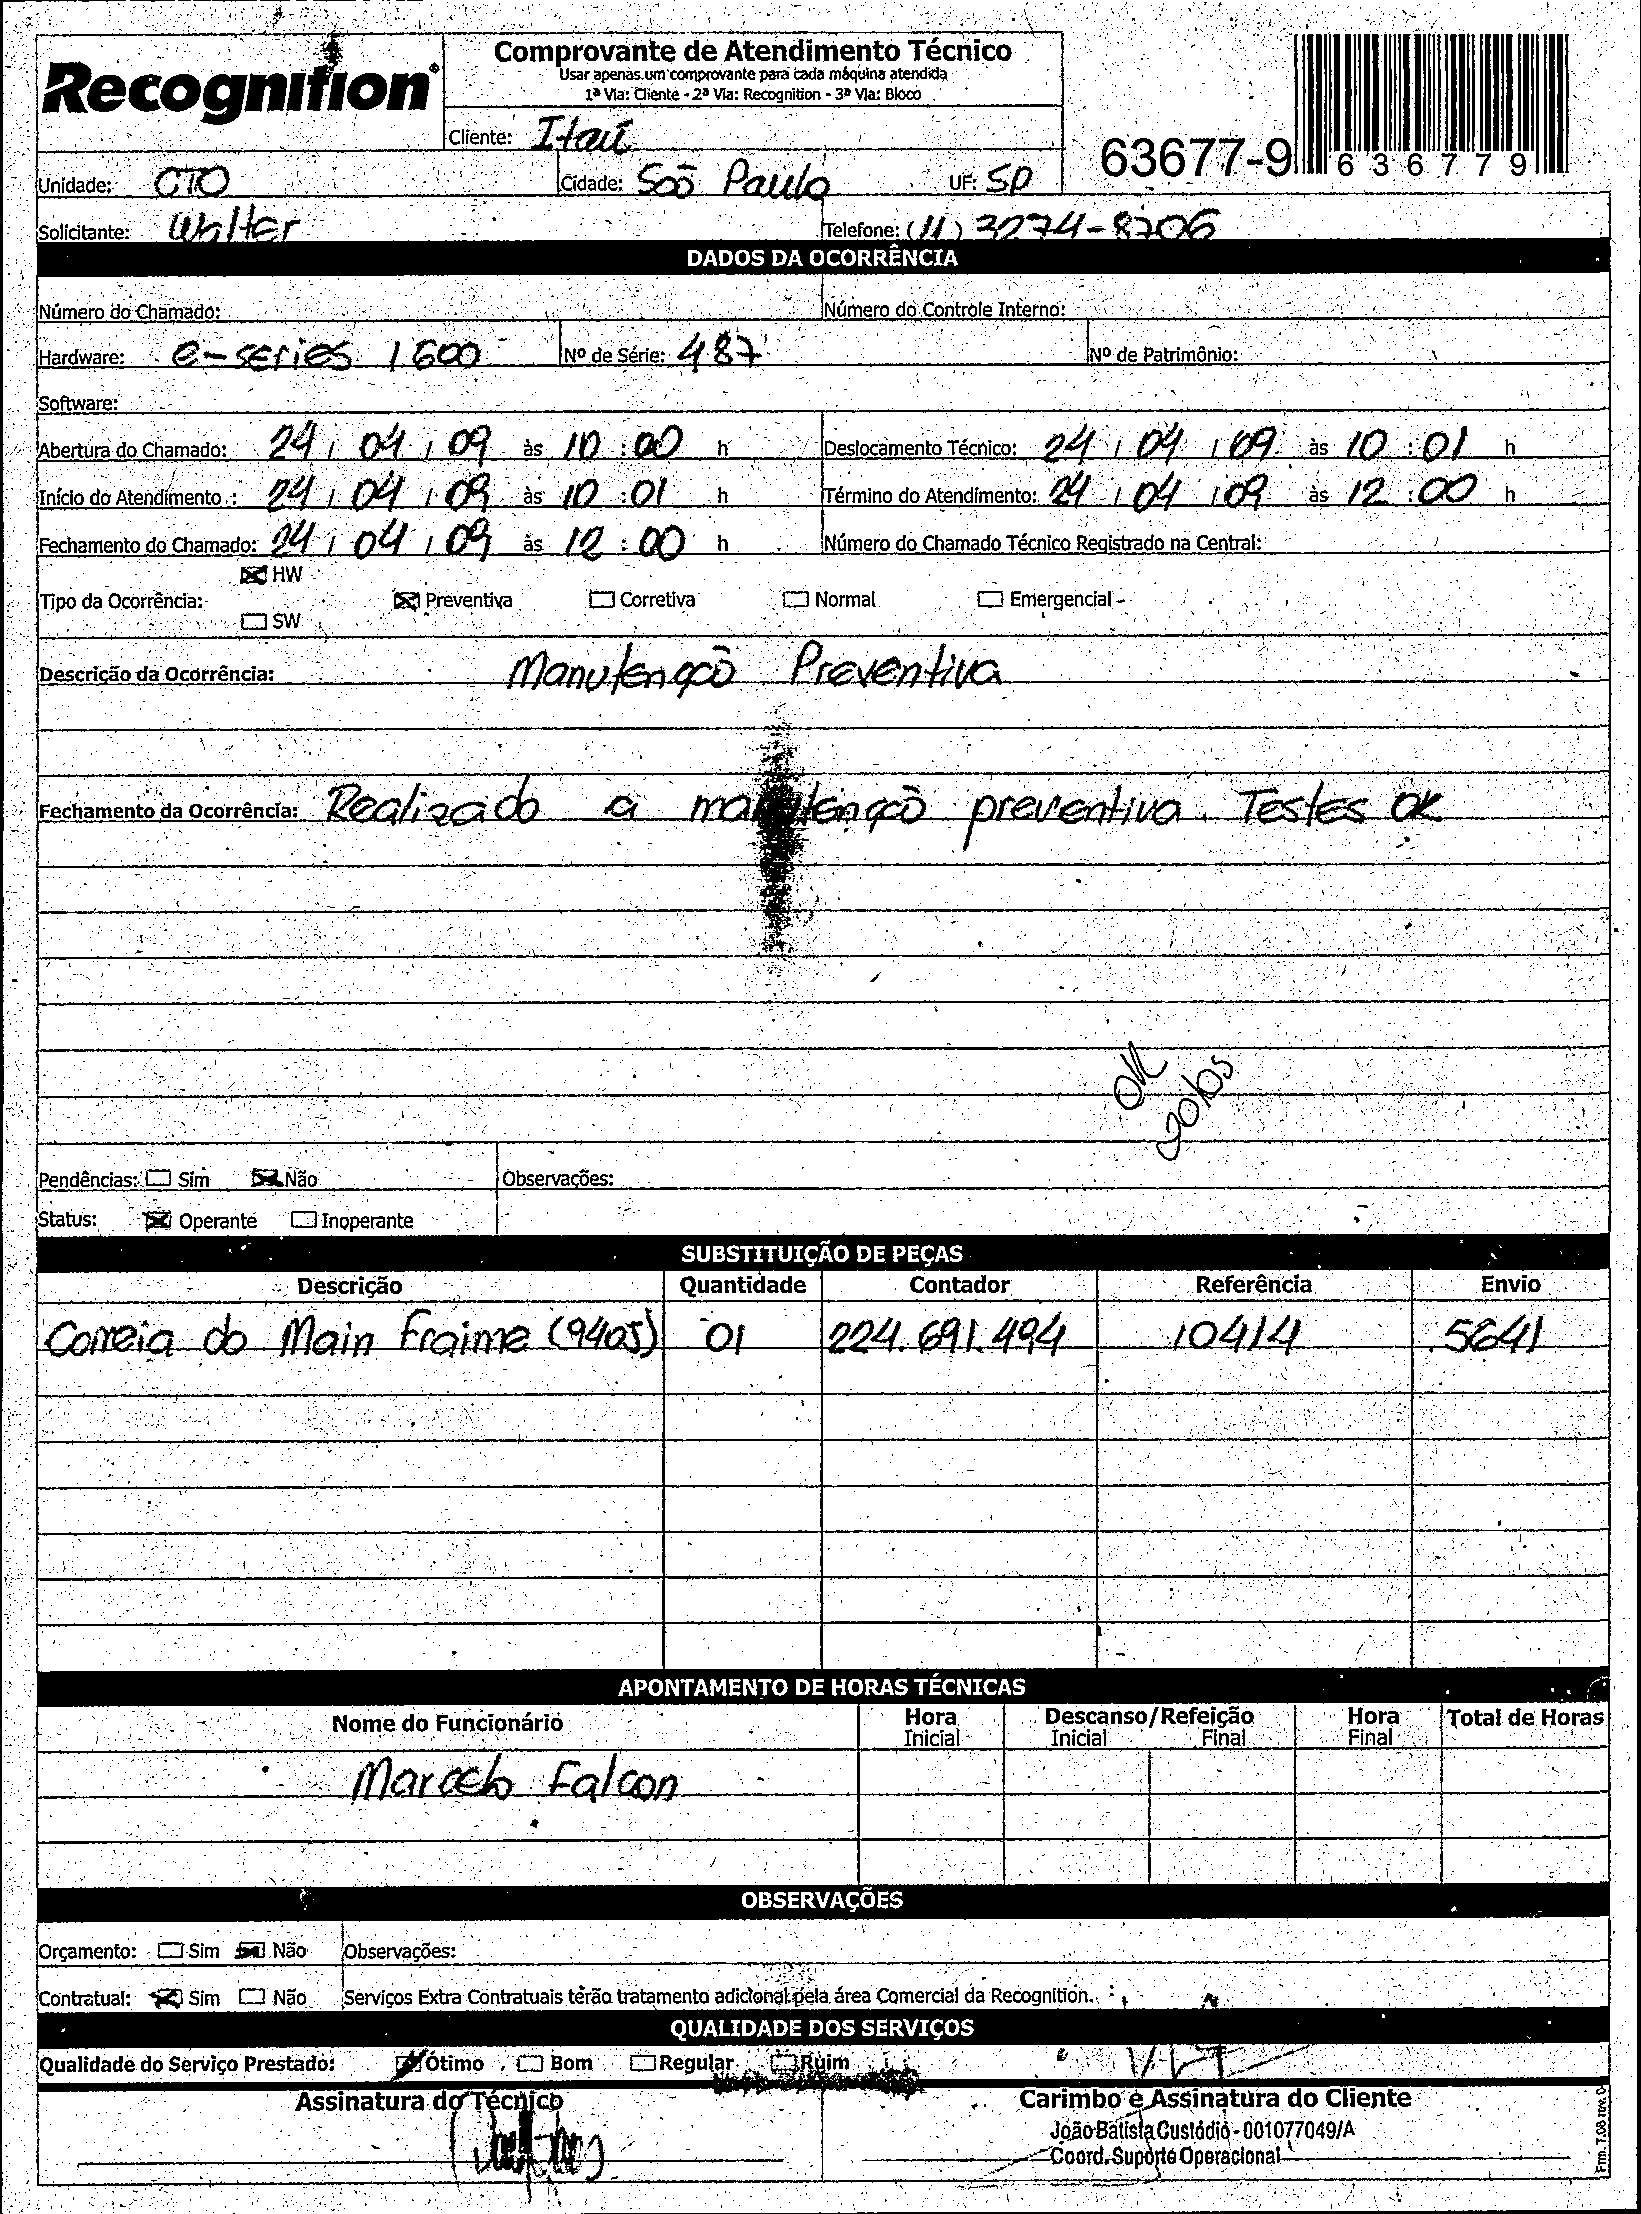 Recognition®
Comprovante de Atendimento Técnico
Usar apenas um comprovante para cada máquina atendida
1ª Via: Cliente - 2ª Via: Recognition - 3ª Via: Bloco
Cliente: Itaú
63677-9
6 3 6 7 7 9
Unidade: CTO Cidade: Soõ Paulo UF: SP
Solicitante: Walter Telefone: (11) 3274-8706
DADOS DA OCORRÊNCIA
Número do Chamado: Número do Controle Interno:
Hardware: e-series 1600 Nº de Série: 487 Nº de Patrimônio:
Software:
Abertura do Chamado: 24 / 04 / 09 às 10 : 00 h Deslocamento Técnico: 24 / 04 / 09 às 10 : 01 h
Início do Atendimento : 24 / 04 / 09 às 10 : 01 h Término do Atendimento: 24 / 04 / 09 às 12 : 00 h
Fechamento do Chamado: 24 / 04 / 09 às 12 : 00 h Número do Chamado Técnico Registrado na Central:
Tipo da Ocorrência: HW SW Preventiva Corretiva Normal Emergencial
Descrição da Ocorrência: Manutençoõ Preventiva
Fechamento da Ocorrência: Realizado a manutençoõ preventiva. Testes OK
OK
Pendências: Sim Não Observações:
Status: Operante Inoperante
SUBSTITUIÇÃO DE PEÇAS
Descrição Quantidade Contador Referência Envio
Correia do Main Fraime (9405) 01 224.691.494 10414 5641
APONTAMENTO DE HORAS TÉCNICAS
Nome do Funcionário Hora Inicial Descanso/Refeição Inicial Final Hora Final Total de Horas
Marcelo Falcon
OBSERVAÇÕES
Orçamento: Sim Não Observações:
Contratual: Sim Não Serviços Extra Contratuais terão tratamento adicional pela área Comercial da Recognition.
QUALIDADE DOS SERVIÇOS
Qualidade do Serviço Prestado: Ótimo Bom Regular Ruim
Assinatura do Técnico Carimbo e Assinatura do Cliente
João Batista Custódio - 001077049/A
Coord. Suporte Operacional
Frm. 7.08 rev. C